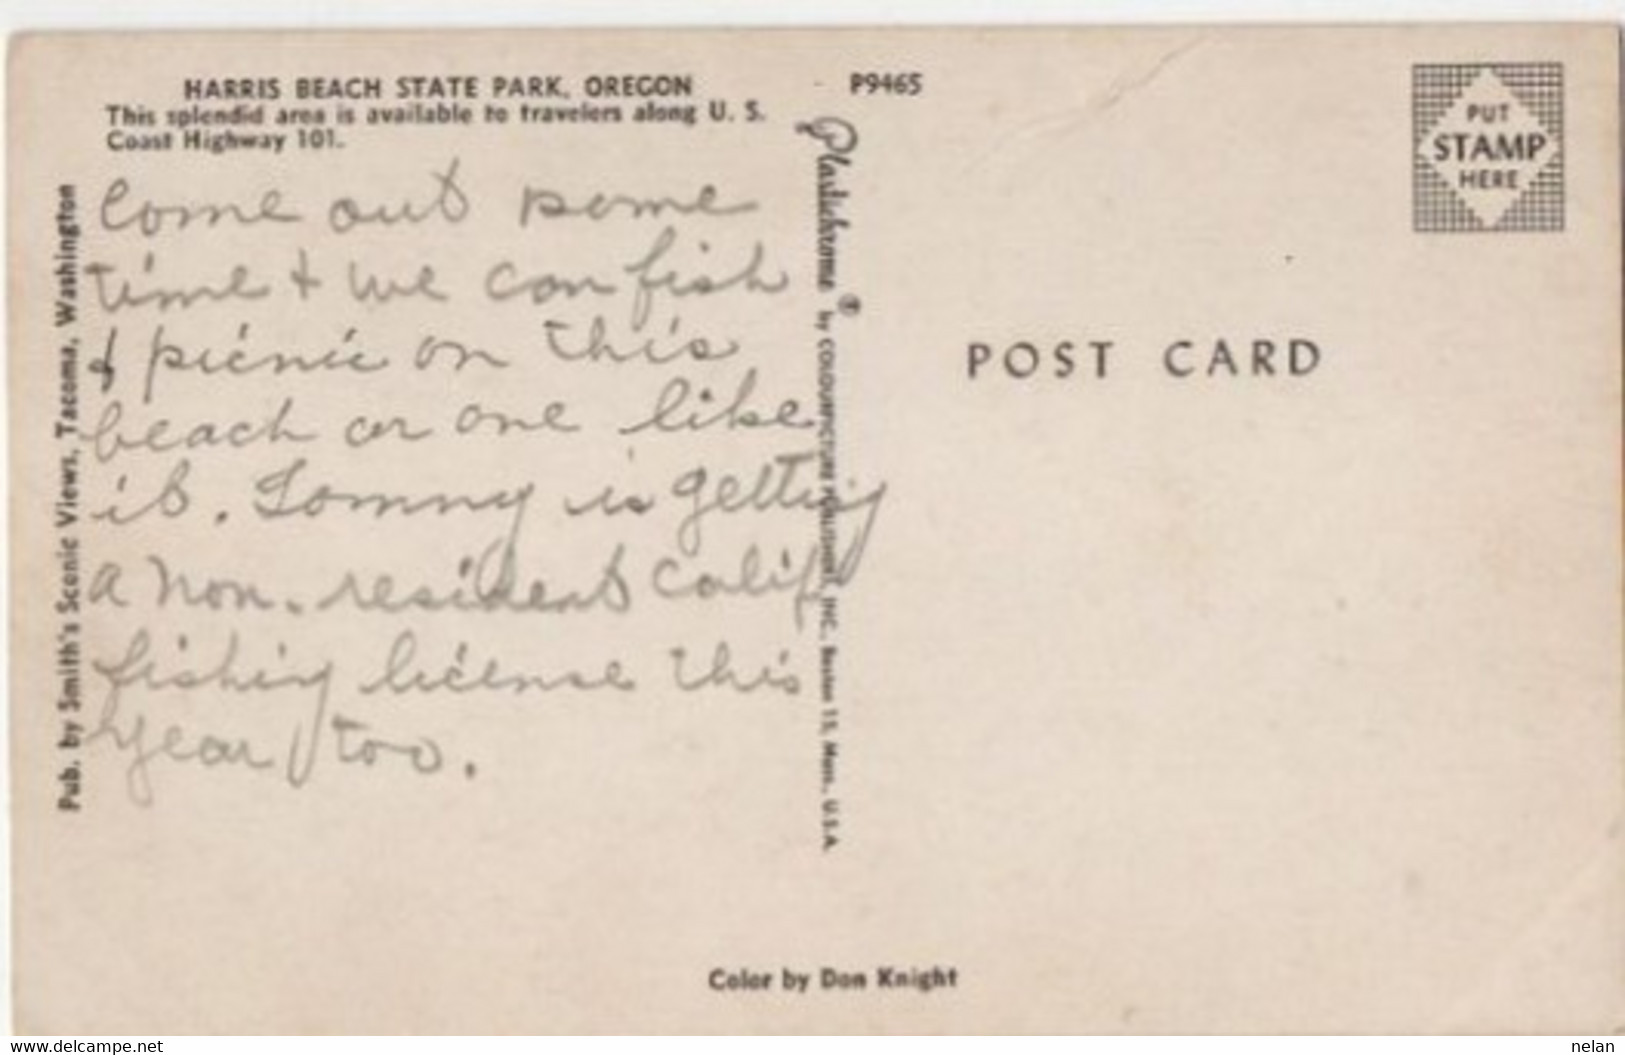 HARRIS BEACH STATE PARK, OREGON
This splendid area is available to travelers along U. S.
Coast Highway 101.
Come out some
time + we can fish
& picnic on this
beach or one like
it. Tommy is getting
a non-resident Calif
fishing license this
year too.
Pub. by Smith's Scenic Views, Tacoma, Washington
P9465
Plastichrome ® by COLOURPICTURE PUBLISHERS, INC., Boston 15, Mass., U.S.A.
PUT
STAMP
HERE
POST CARD
Color by Don Knight
www.delcampe.net
nelan